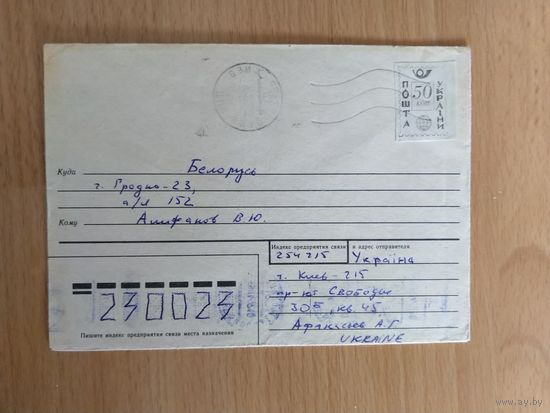 ПОШТА 50 УКРАЇНИ
Куда Белорусь
г. Гродно-23,
а/я 152
Кому Алифанов В.Ю.
Индекс предприятия связи и адрес отправителя
254215 Україна
г. Киев-215
пр-кт Свободы
30Б, кв. 45
Афанасьев А.Г
UKRAINE
230023
Пишите индекс предприятия связи места назначения
www.ay.by